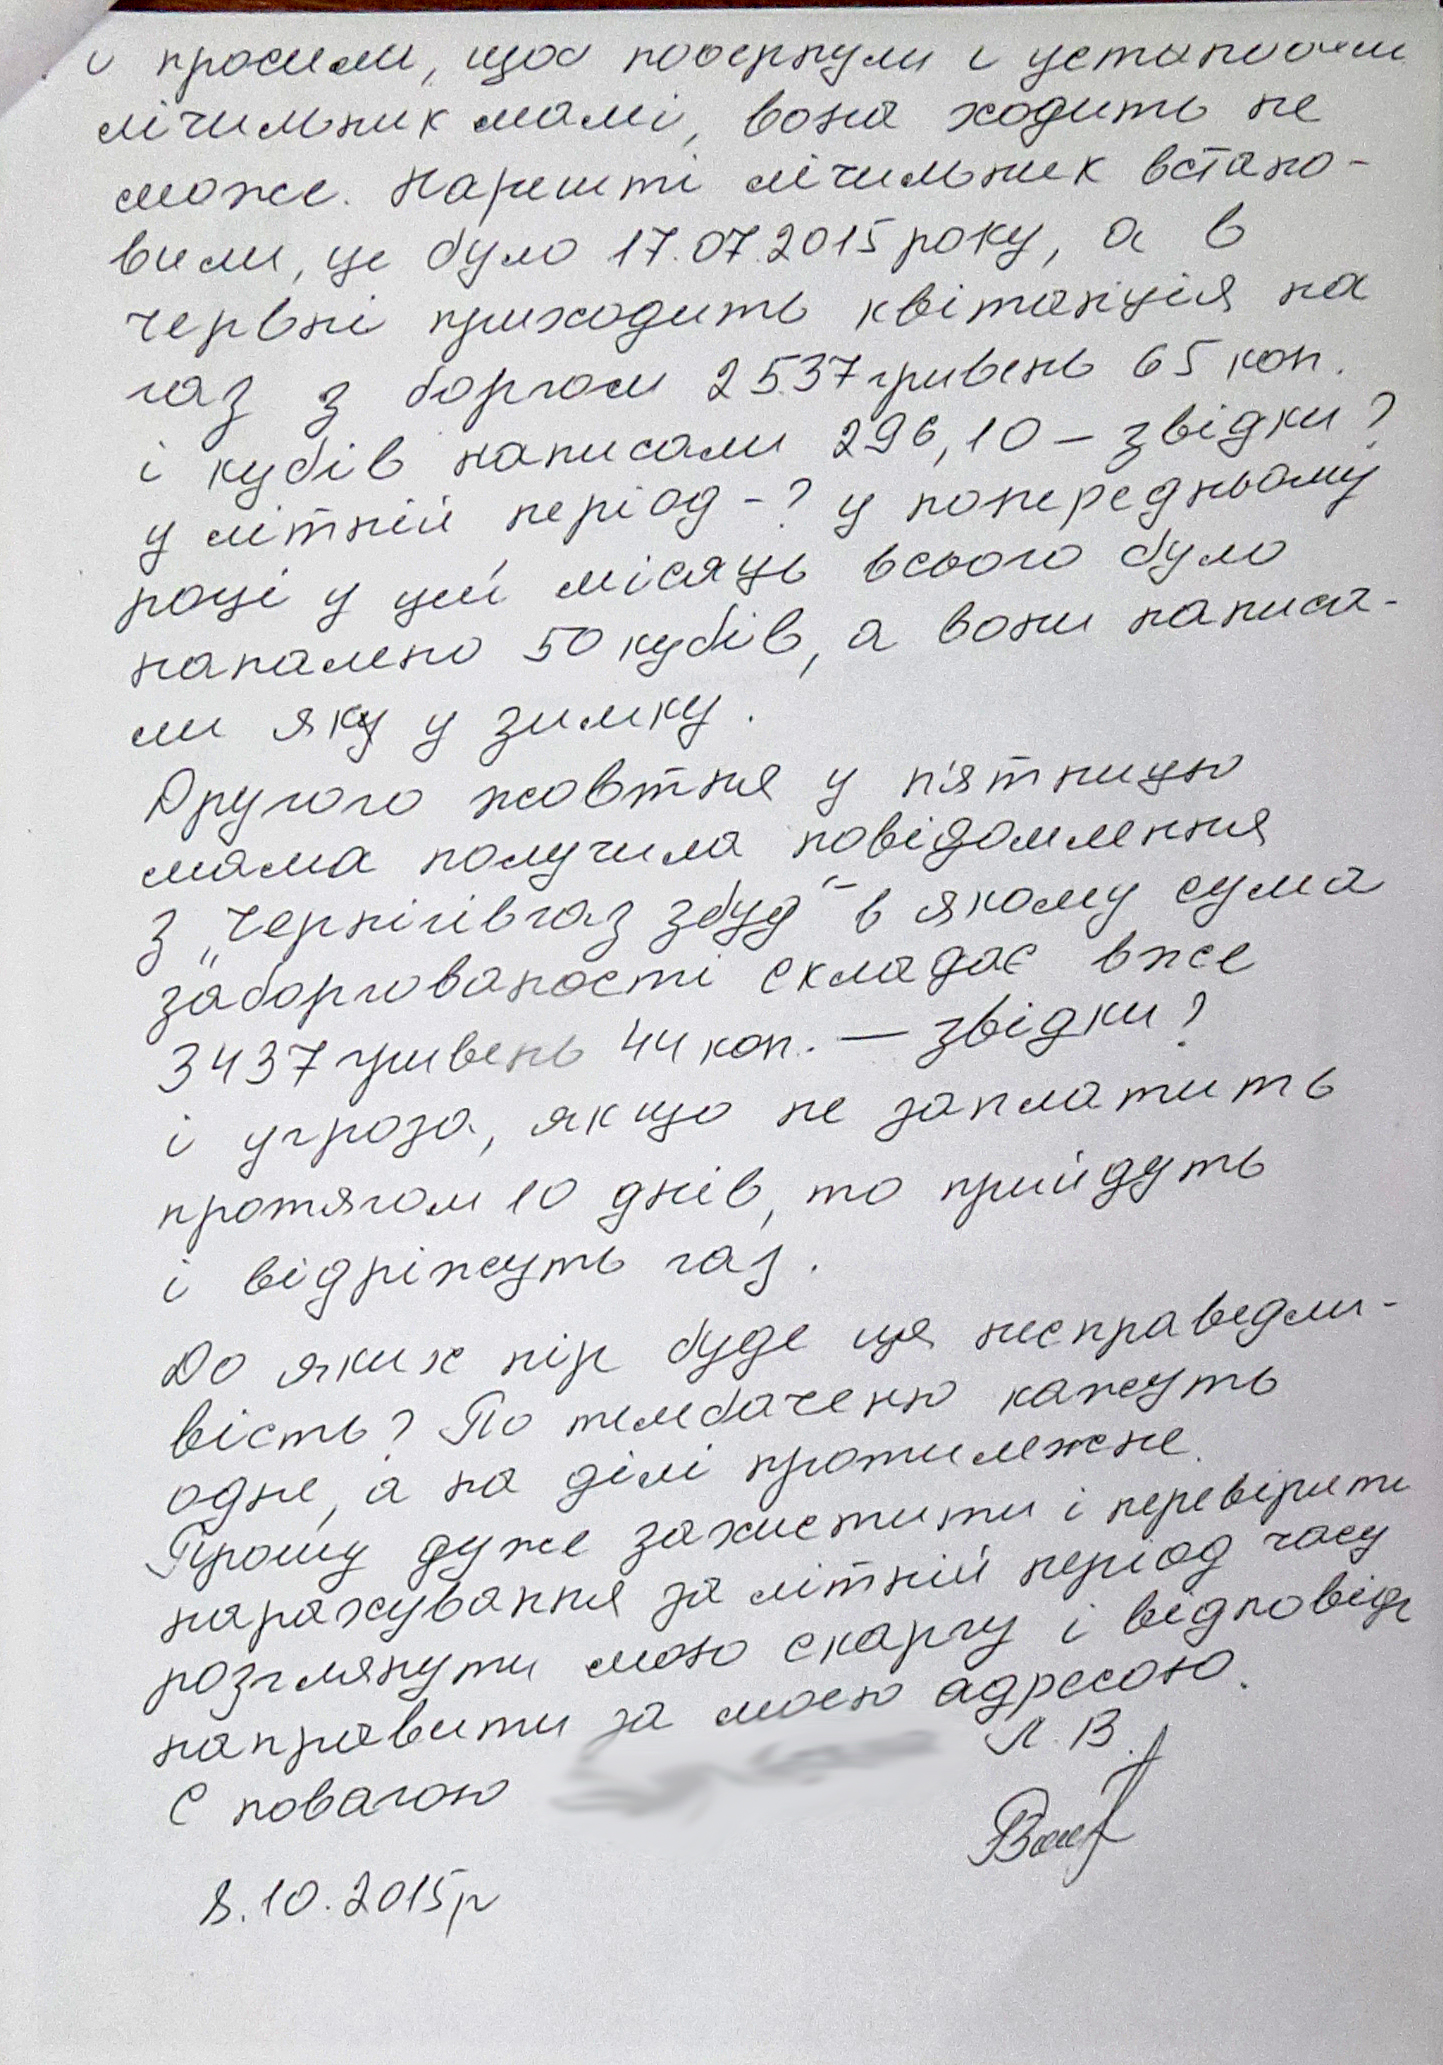 і просили, щоб повернули і установили
лічильник мамі, вона ходить не
може. Нарешті лічильник встано-
вили, це було 17.07.2015 року, а в
червні приходить квітанція на
газ з боргом 2537 гривень 65 коп.
і кубів написали 296,10 – звідки?
у літній період - ? у попередньому
році у цей місяць всього було
напалено 50 кубів, а вони написа-
ли яку у зимку.
Другого жовтня у п'ятницю
мама получила повідомлення
з „Чернігівгаз збуд“ в якому сума
заборгованості складає вже
3437 гривень 44 коп. — звідки?
і угроза, якщо не заплатить
протягом 10 днів, то прийдуть
і відріжуть газ.
До яких пір буде ця несправедли-
вість? По телебаченю кажуть
одне, а на ділі протилежне.
Прошу дуже захистити і перевірити
нарахування за літній період часу
розглянути мою скаргу і відповідь
направити за моєю адресою.
С повагою Л. В.
8.10.2015р